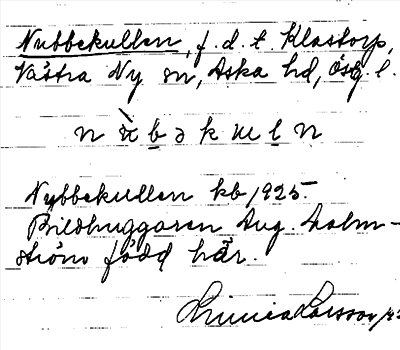 Nubbekullen, f. d. t. Klastorp,
Västra Ny sn, Aska hd, Ösg. l.
Nybbekullen kb 1925.
Bildhuggaren Aug. Malm-
ström född här.
Linnea Larsson